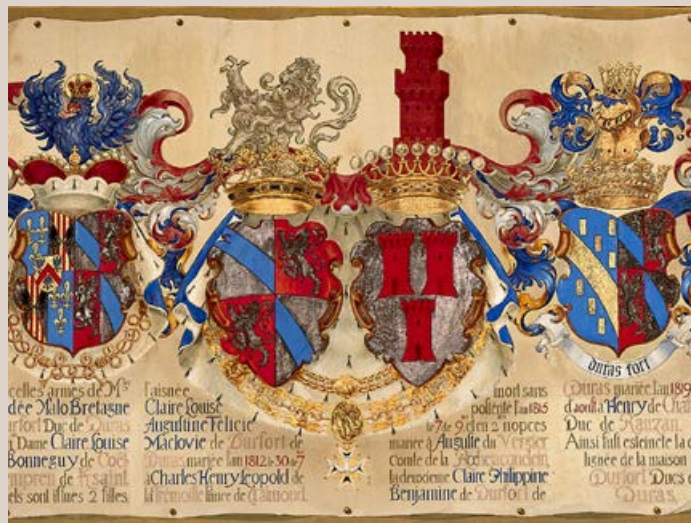 duras fort
celles armes de Mgr
dée Malo Bretagne
urfort Duc de Duras
Dame Claire Louise
Bonneguy de Coët
empren de Ksaint
els sont issues 2 filles
l'aisnee
Claire Louise
Augustine Felicie
Maclovie de Durfort de
Duras mariee l'an 1812 le 30 de 7
à Charles Henry Leopold de
la Tremoille Prince de Talmond.
mort sans
posterite l'an 1815
le 7 de 9 et en 2 nopces
mariée à Auguste du Vergier
Comte de la Rochejacquelein
la deuxieme Claire Philippine
Benjamine de Durfort de
Duras mariée l'an 1819
d'aoust à Henry de Cha
Duc de Rauzan.
Ainsi fust esteincte la
lignée de la maison
Durfort Ducs
Duras.